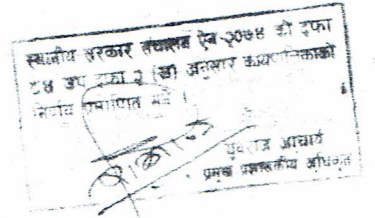 स्थानीय सरकार संचालन ऐन २०७४ को दफा
८४ उप दफा २ (ख) अनुसार कार्यपालिकाको
निर्णय प्रमाणित गर्ने ।
युवराज आचार्य
प्रमुख प्रशासकीय अधिकृत